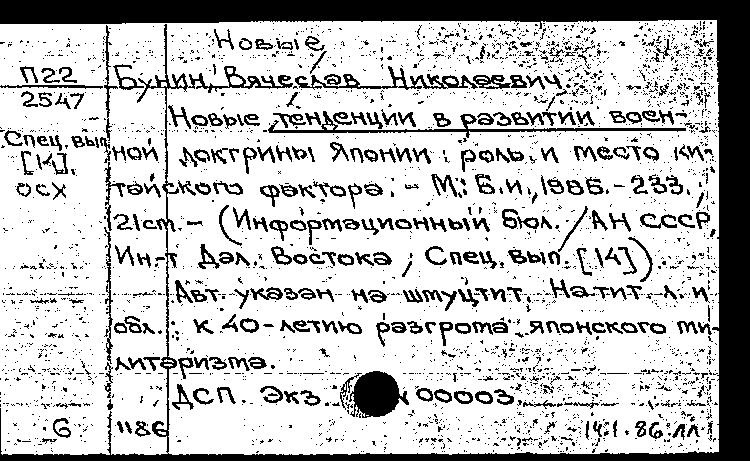 Новые
П22 Бунин, Вячеслав Николаевич
2547
Новые тенденции в развитии воен-
Спец. вып. ной доктрины Японии: роль и место ки-
[14].
осх тайского фактора. - М.: Б.и., 1985. - 233,
21 cm. - (Информационный бюл. / АН СССР,
Ин-т Дал. Востока; Спец. вып. [14]).
Авт. указан на шмуцтит. На тит. л. и
обл.: К 40-летию разгрома японского ми-
литаризма.
ДСП. Экз. 00003.
6 1186 14.1.86 лл